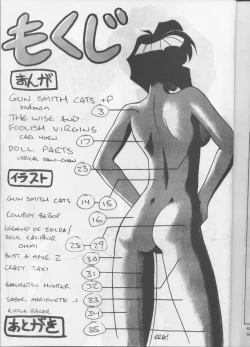 もくじ
まんが
GUN SMITH CATS +P
3
THE WISE AND
FOOLISH VIRGINS
CARL HORN
17
DOLL PARTS
23
イラスト
GUN SMITH CATS 14 15
COWBOY BEBOP 16
LEGEND OF ZELDA/
SOUL CALIBUR 28 29
BUST A MOVE 2 30
CRAZY TAXI 31
BAKURETSU HUNTER 32
SABER MARIONETTE J 33
RIDGE RACER 34
あとがき 35